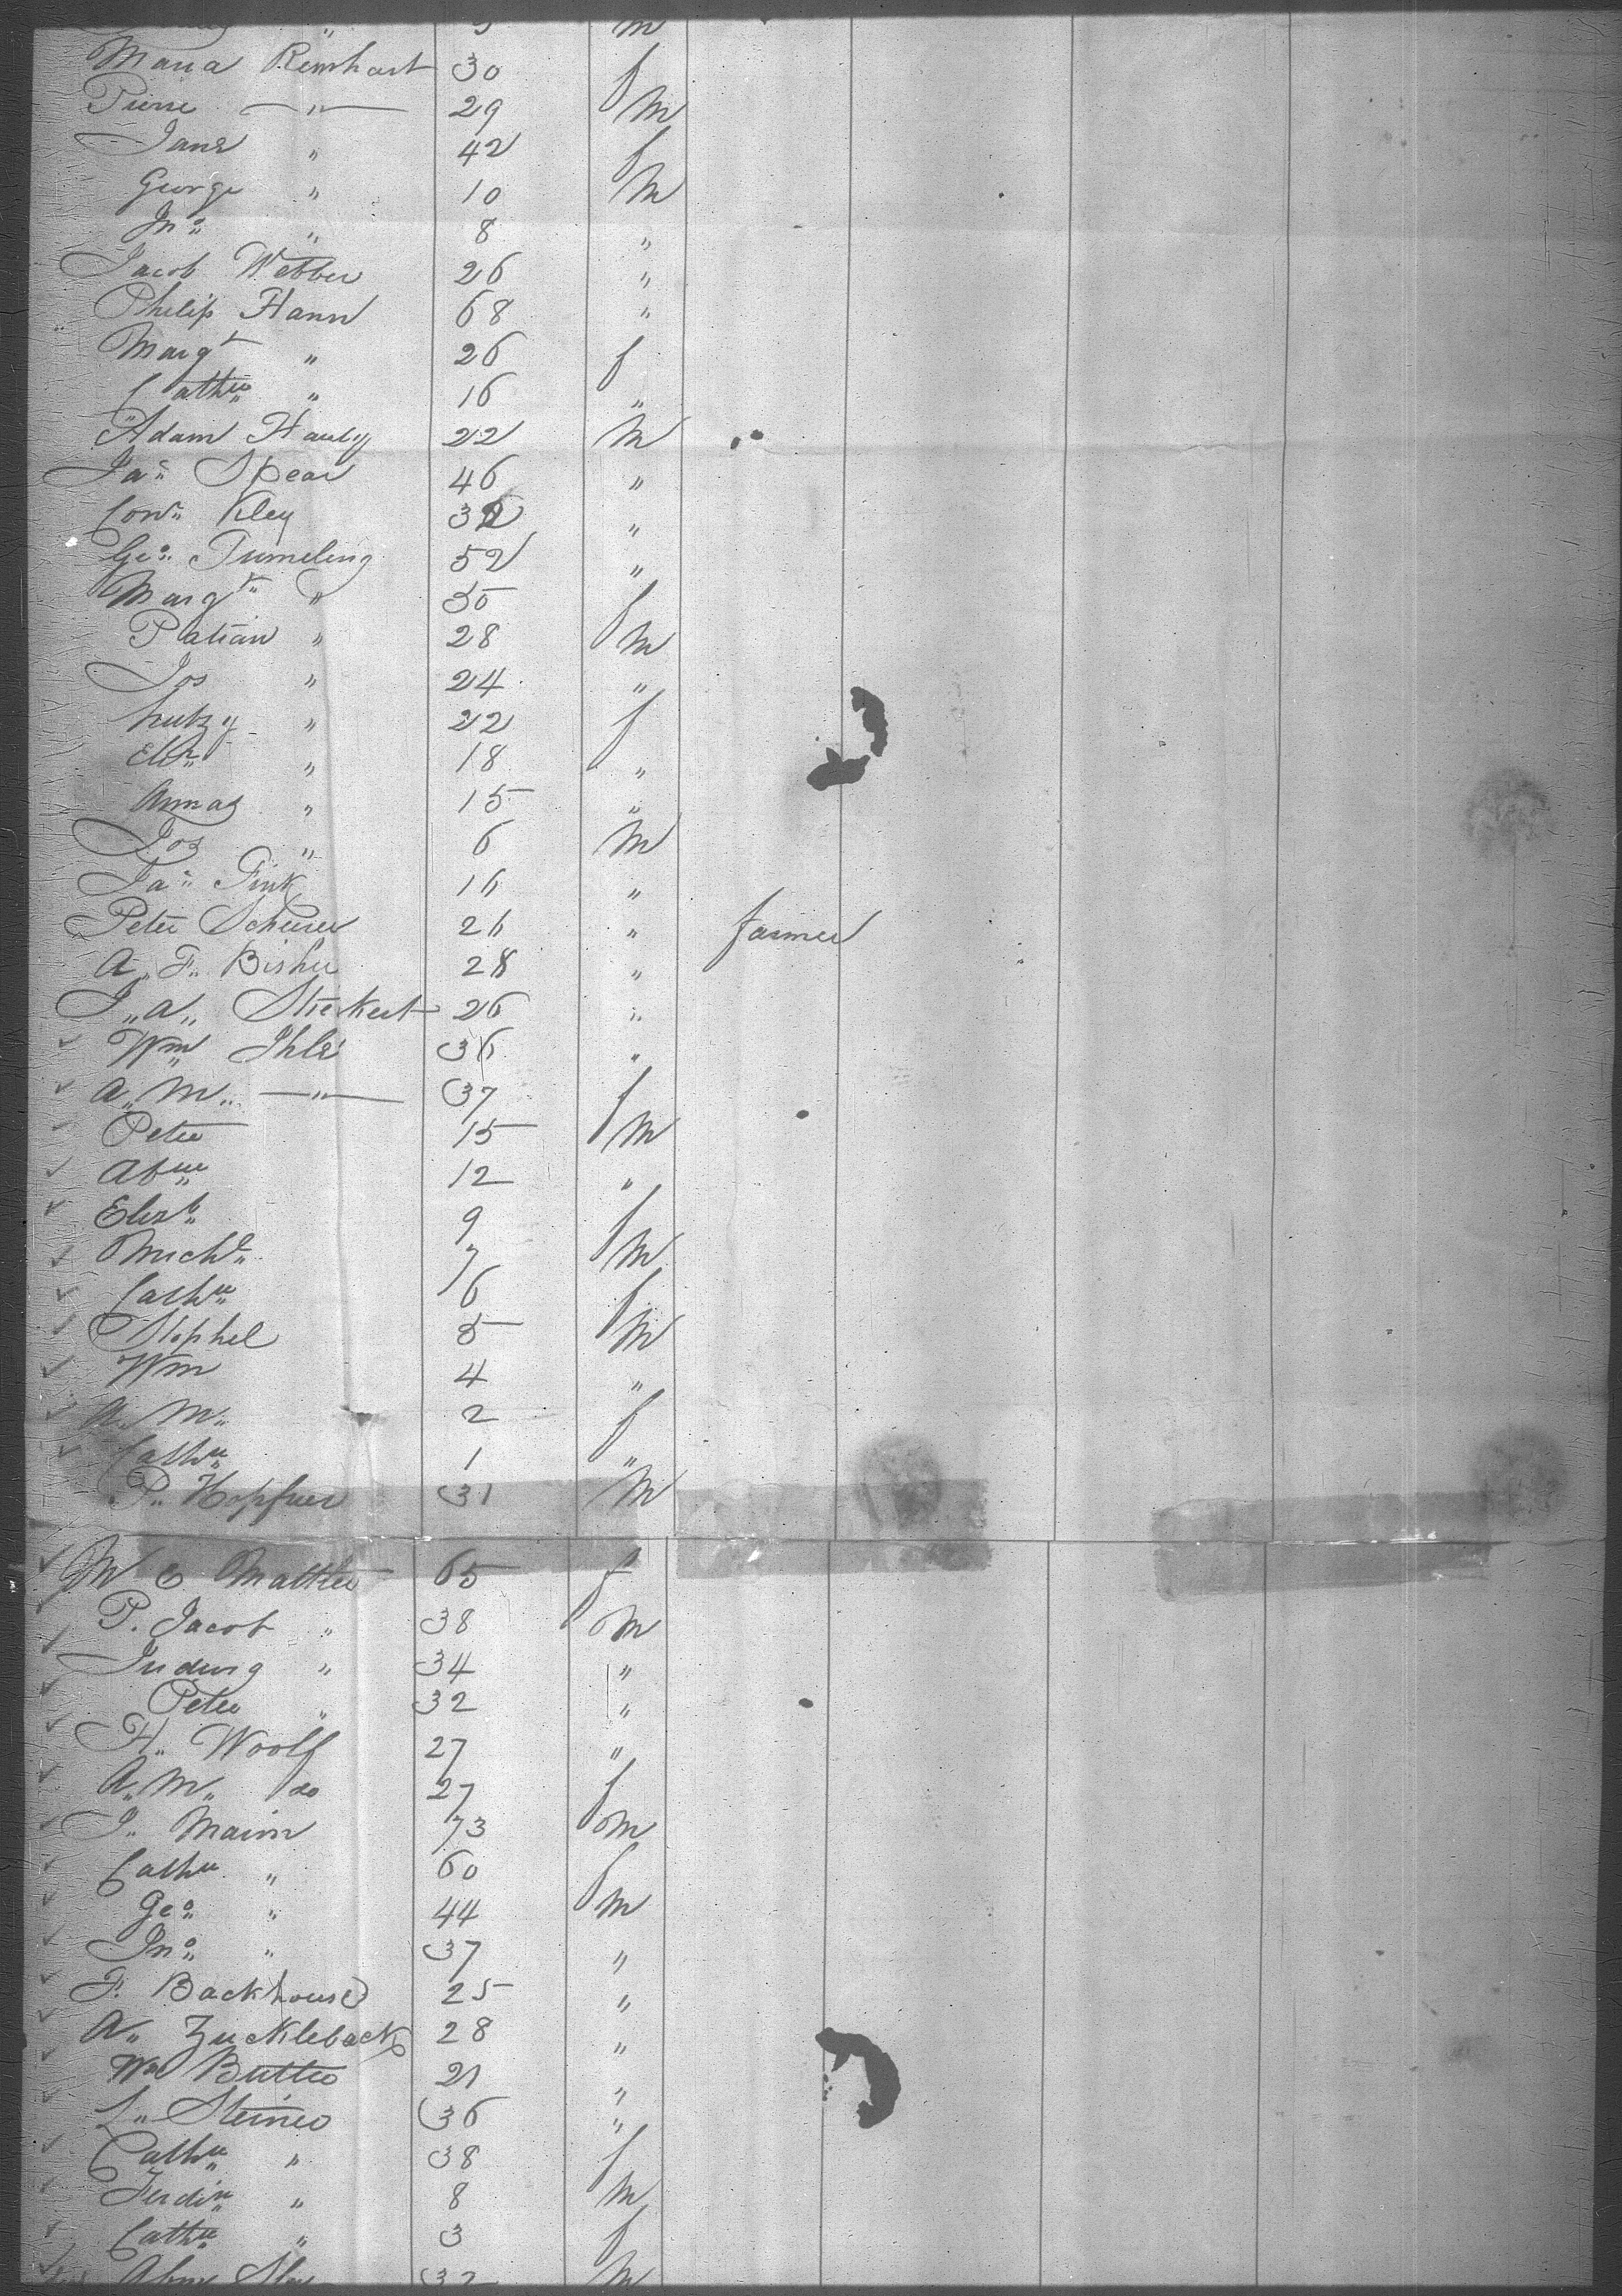 " 5 m
Maria Reinhart 30 f
Pierre " 29 m
Jane " 42 f
George " 10 m
Jno " 8 "
Jacob Webber 26 "
Philip Hann 68 "
Margt " 26 f
Cathne " 16 "
Adam Hauly 22 m
Jas Spear 46 "
Conn Kley "
Geo Tumeling 52 "
Margt " 50 f
Patian " 28 m
Jos " 24 "
" 22 f
Elizh " 18 "
Annas " 15 "
Jos " 6 m
Jas Fink 16 "
Peter Scheirer 26 " farmer
A. F. Bisher 28 "
J. A. Sterkert 26 "
Wm Ihle 36 "
A. M. " 37 f
Peter 15 m
Abm 12 "
Elizb 9 f
Michl 7 m
Cathne 6 f
Stophel 5 m
Wm 4 "
A. M. 2 f
Cathne 1 "
P. Hopfner 31 m
M E Matter 65 f
P. Jacob " 38 m
Ludwig " 34 "
Peter " 32 "
H. Woolf 27 "
A. M. do 27 f
J. Maim 73 m
Cathe " 60 f
Geo " 44 m
Jno " 37 "
F. Backhouse 25 "
A. Zuckleback 28 "
Wm Butter 21 "
L. Steiner 36 "
Cathne " 38 f
Ferdin " 8 m
Cathne " 3 f
Abm 32 m